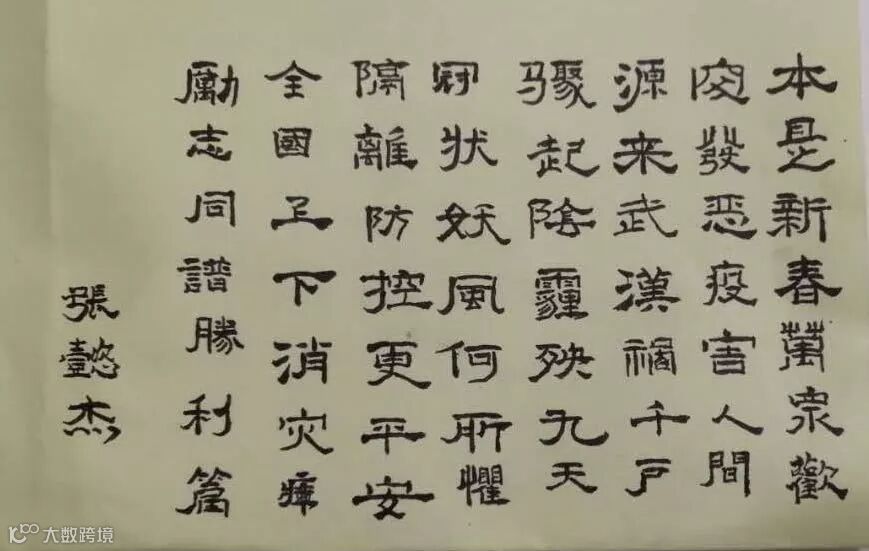 本是新春萬家歡
突發恶疫害人間
源来武漢禍千户
骤起陰霾殃九天
冠状妖風何所懼
隔離防控更平安
全國上下消灾瘴
勵志同譜勝利篇
張懿杰
大数跨境